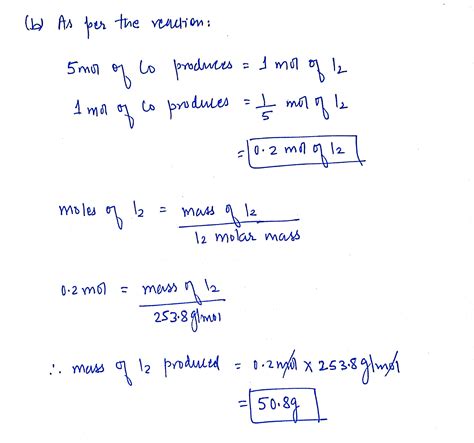 (b) As per the reaction:
5 mol of Co produces = 1 mol of I2
1 mol of Co produces = 1/5 mol of I2
= 0.2 mol of I2
moles of I2 = mass of I2 / I2 molar mass
0.2 mol = mass of I2 / 253.8 g/mol
∴ mass of I2 produced = 0.2 mol x 253.8 g/mol
= 50.8g